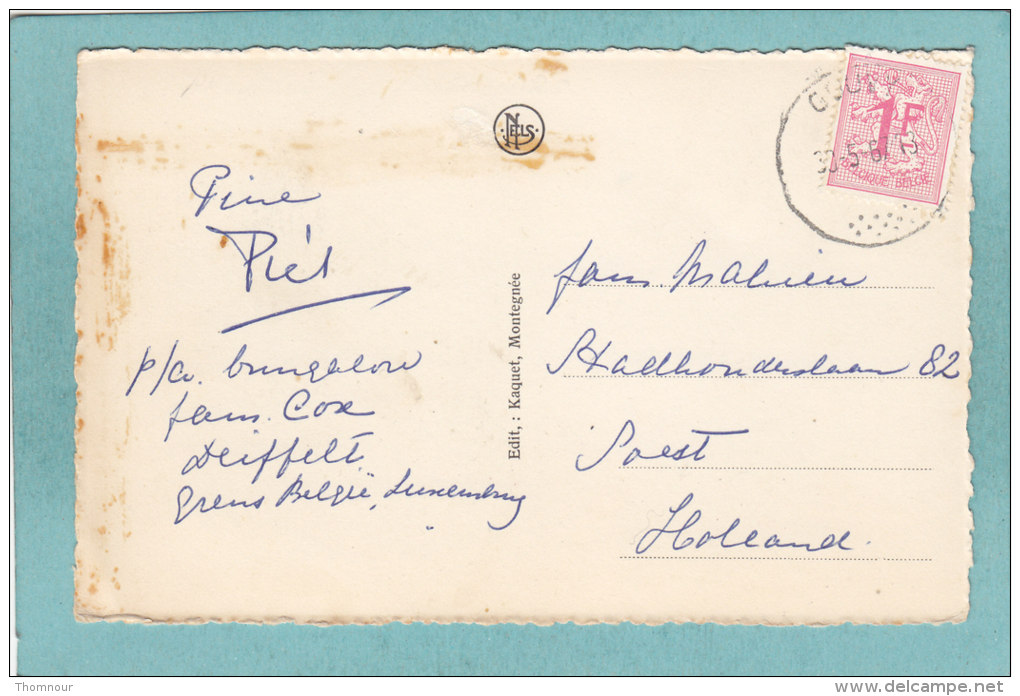 NELS
GOUVY
1F
BELGIQUE BELGIE
Pine
Piet
p/a. bungalow
fam. Cox
Deiffelt
grens België, Luxemburg
Edit,: Kaquet, Montegnée
fam. Mahieu
Stadhouderslaan 82
Soest
Holland.
Thomnour
www.delcampe.net